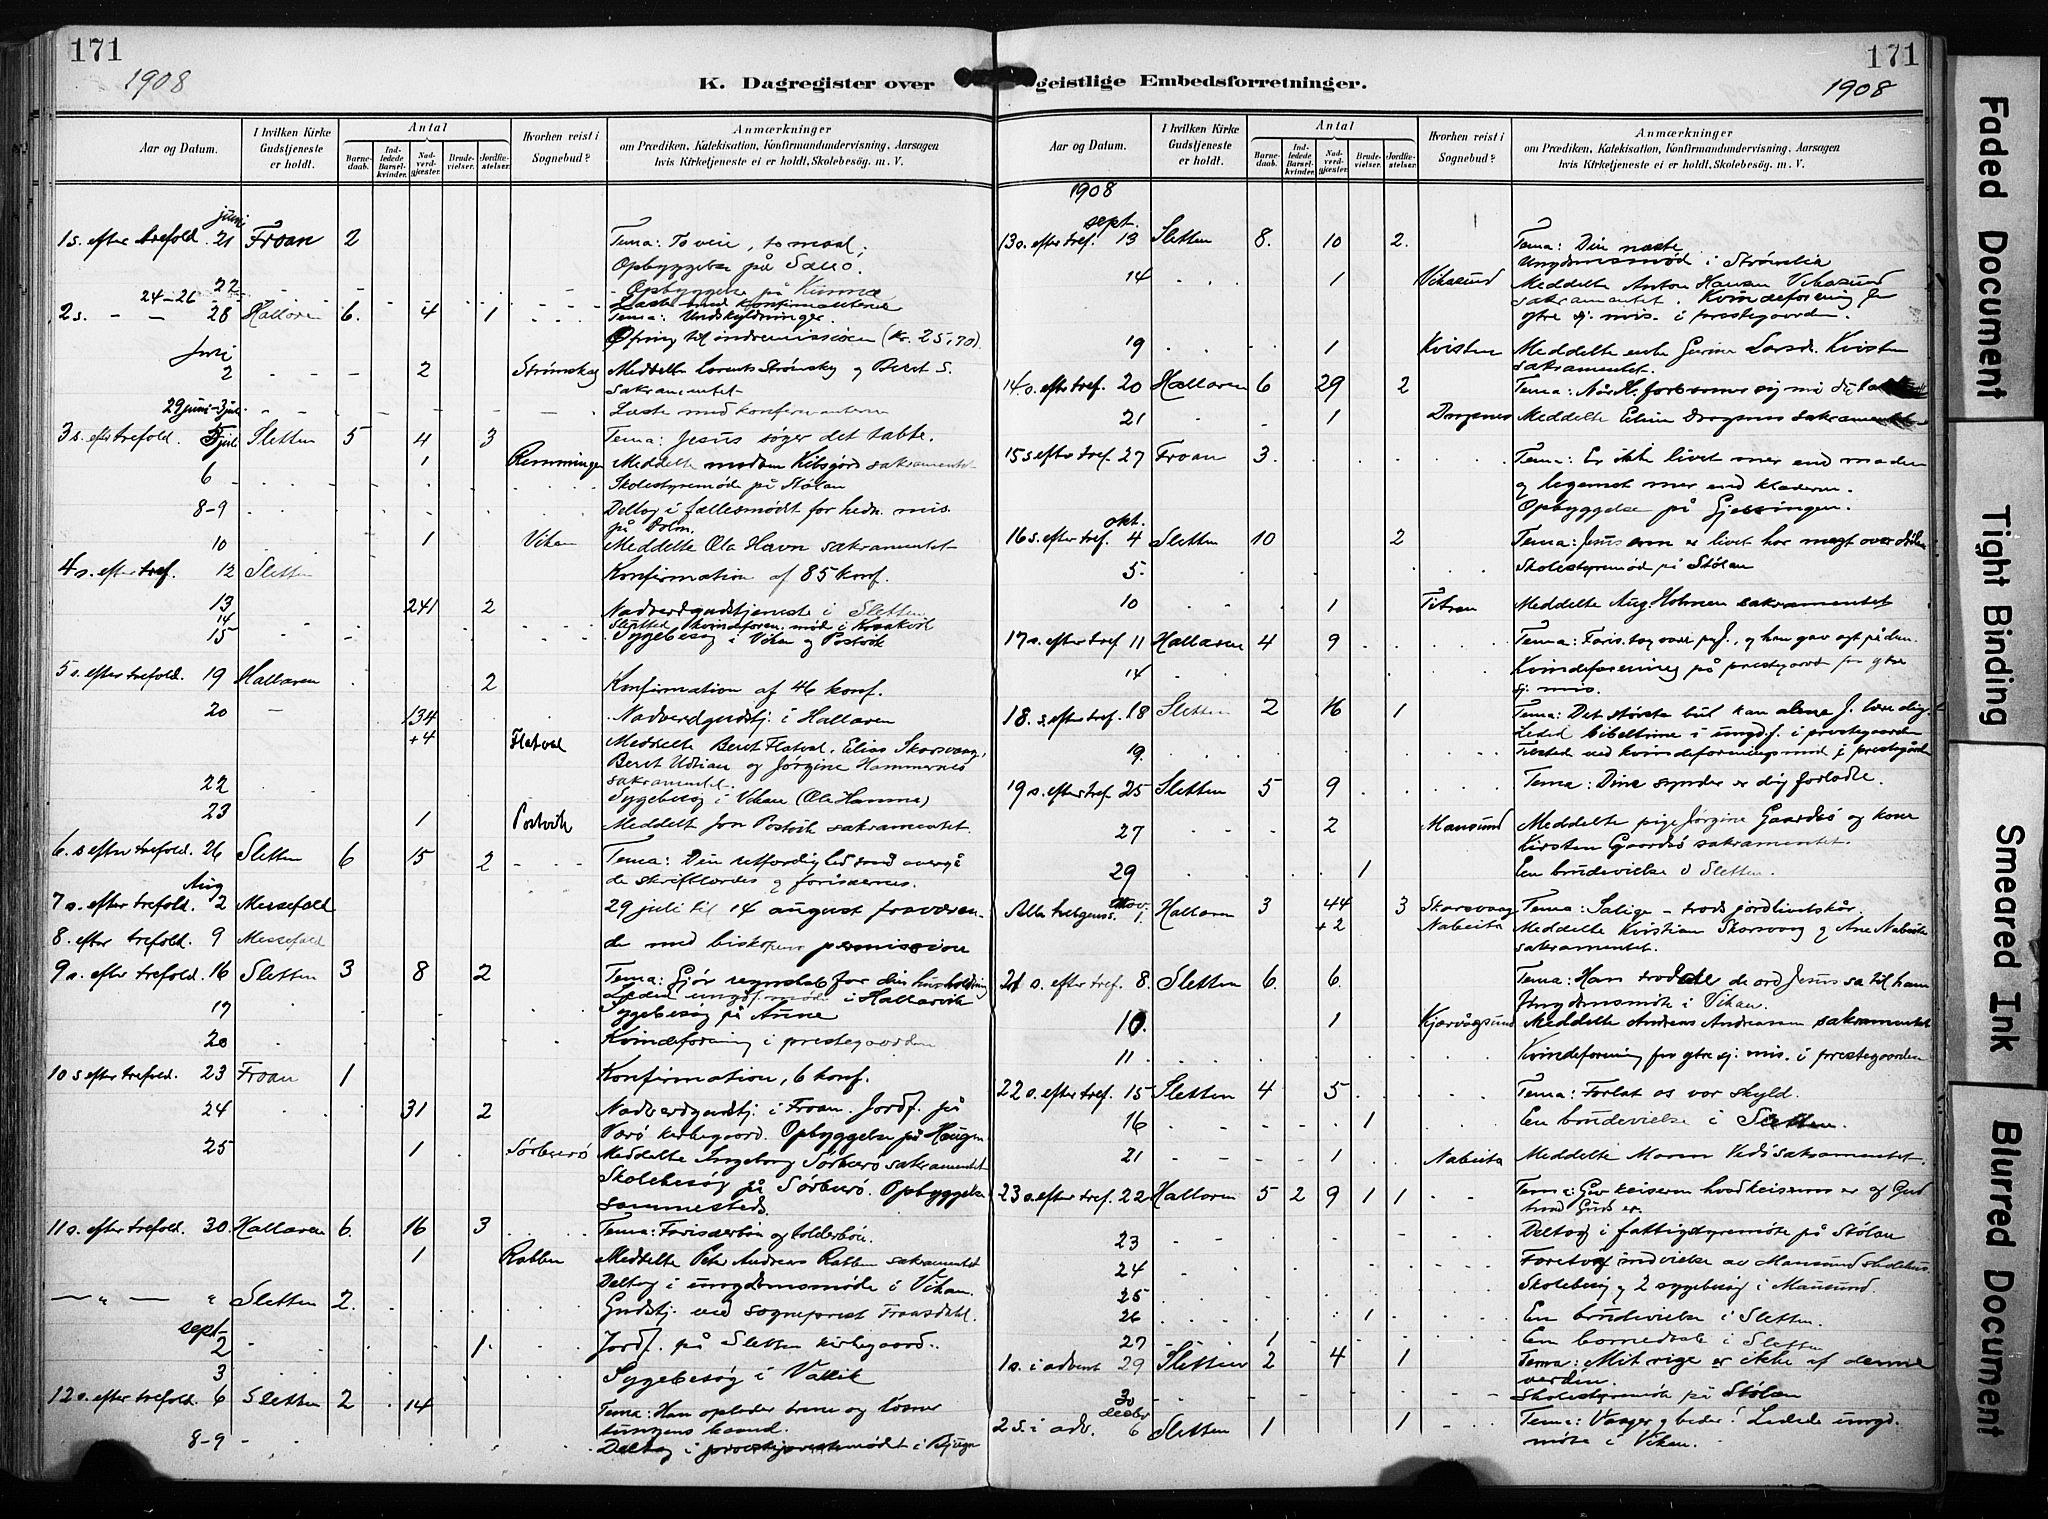 171
1908
K. Dagregister over
Aar og Datum.
I hvilken Kirke Gudstjeneste er holdt.
Antal
Barnedaab.
Indledede Barselkvinder.
Nadverdgjæster.
Brudevielser.
Jordfæstelser.
Hvorhen reist i Sognebud?
Anmærkninger
om Prædiken, Katekisation, Konfirmandundervisning, Aarsagen
hvis Kirketjeneste ei er holdt, Skolebesøg. m. V.
juni
1 s. efter trefold. 21 Froan 2 Tema: To veie, to maal;
Opbyggelse på Sallo.
22 Opbyggelse på
24-26 Læste med konfirmanterne
2 s. — — 28 Hallaren 6. 4 1 Tema: Undskyldninger.
Ofring til indremissionen (kr. 25,70).
Juli
2 2 Strømskag Meddelte Strømskag og Beret S.
sakramentet
29 juni-3 juli Læste med konfirmanterne
3 s. efter trefold. 5 juli Sletten 5 4 3 Tema: Jesus søger det tabte.
1 Remmingen Meddelte madam Kibsgård sakramentet
6 Skolestyremøde på Stølan
8-9 Deltog i fællesmødet for hedn. mis.
på Dolm.
10 1 Vikan Meddelte Ola Havn sakramentet
4 s. efter tref. 12 Sletten Konfirmation af 85 konf.
13 241 2 Nadverdgudstjeneste i Sletten
14 kvindeforen. mød i Kraakvåk
15 Sygebesøg i Vikan og Postvik
5 s. efter trefold. 19 Hallaren 2 Konfirmation af 46 konf.
20 — 134 Nadverdgudstj. i Hallaren
+4 Flatval Meddelte Beret Flatval, Elias Skarsvaag,
Beret Udtian og Jørgine Hammernes
sakramentet.
22 Sygebesøg i Vikan (Ola Hamma)
23 1 Postvik Meddelt Jon Postvik sakramentet.
6. s efter trefold. 26 Sletten 6 15 2 Tema: Din retfærdighed maa overgå
de skriftlærdes og farisæernes.
Aug
7 s. efter trefold. 2 Messefald 29 juli til 14 august fraværen-
8. efter trefold. 9 Messefald de med biskopens permission
9 s. efter trefold. 16 Sletten 3 8 2 Tema: Gjør regnskab for din husholdning
Leded ungd. møde i Hallarvik
17 Sygebesøg på Aune
20 Kvindeforening i prestegaarden
10 s efter trefold. 23 Froan 1 Konfirmation, 6 konf.
24 31 2 Nadverdgudstj. i Froan. Jordf. på
Værø kirkegaard. Opbyggelse på Haugen
25 1 Sørburø Meddelte Ingeborg Sørburø sakramentet
Skolebesøg på Sørburø. Opbyggelse
sammesteds.
11 s. efter trefold. 30. Hallaren 6. 16 3 Tema: Farisæerbøn og tolderbøn.
1 Rabben Meddelte Peter Andreas Rabben sakramentet
Deltog i ungdomsmøde i Vikan.
— „ — „ Sletten 2. Gudstj. ved sogneprest Fraasdahl.
sept.
2 1. Jordf. på Sletten kirkegaard.
3 Sygebesøg i Vallik
12 s. efter trefold. 6 Sletten 2 14 Tema: Han oplader ørene og løsner
tungens baand.
8-9 Deltog i provstiprestemødet i Bjugn
171
1908
geistlige Embedsforretninger.
Aar og Datum.
I hvilken Kirke Gudstjeneste er holdt.
Antal
Barnedaab.
Indledede Barselkvinder.
Nadverdgjæster.
Brudevielser.
Jordfæstelser.
Hvorhen reist i Sognebud?
Anmærkninger
om Prædiken, Katekisation, Konfirmandundervisning, Aarsagen
hvis Kirketjeneste ei er holdt, Skolebesøg. m. V.
1908
sept.
13 s. efter tref. 13 Sletten 8. 10 2. Tema: Din næste
Ungdomsmød i Strømslia
14 1 Vikasund Meddelte Anton Hansen Vikasund
sakramentet. Kvindeforening for
ytre sj. mis. i prestegaarden.
19 1 Kvisten Meddelte enke Gurine Larsdr. Kvisten
sakramentet.
14 s. efter tref. 20 Hallaren 6 29 2 Tema: Når K. forbarmer sig
21 1 Dragsnes Meddelte Elen Dragsnes sakramentet
15 s efter tref. 27 Froan 3. Tema: Er ikke livet mer end maden
og legemet mer end klæderne.
Opbyggelse på Gjessingen.
okt.
16 s. efter tref. 4 Sletten 10 2 Tema: Jesus som er livet har magt over døden
5. Skolestyremød på Stølan
10 1 Titran Meddelte Aug. Holmen sakramentet
17 s. efter tref. 11 Hallaren 4 9 Tema: Faris. tog vare på J., og han gav agt på dem.
14 Kvindeforening på prestegaard for ytre
sj. mis.
18. s. efter tref. 18 Sletten 2 16 1 Tema: Det største bud kan alene J. lære dig.
Leded bibeltime i ungd.f. i prestegaarden
19. Tilsted ved kvindeforeningsmød i prestegården
19 s. efter tref. 25 Sletten 5 9 Tema: Dine synder er dig forladte.
27 2 Mausund Meddelte pige Jørgine Gaardsø og kone
Kirsten Gaardsø sakramentet.
29 1 En brudevielse i Sletten.
Alle helgenss. Nov. 1. Hallaren 3 44 3 Skarsvaag Tema: Salige – trods jordlivetskår.
+2 Nabeita Meddelte Kristian Skarsvaag og Ane Nabeita
sakramentet.
21 s. efter tref. 8. Sletten 6. 6. Tema: Han trodde de ord Jesus sa til ham
Ungdomsmøte i Vikan.
10. 1 Kjærvågsund Meddelte Andreas Andreassen sakramentet
11. Kvindeforening for ytre sj. mis. i prestegaarden
22 s. efter tref. 15 Sletten 4 5 Tema: Forlat os vor skyld.
16 1 En brudevielse i Sletten.
21 1 Nabeita Meddelte Maren Vedø sakramentet.
23 s. efter tref. 22 Hallaren 5 2 9 1 1 Tema: Giv keiseren hvad keiserens er og Gud
hvad Guds er.
23 Deltog i fattigstyremøte på Stølan
24 Foretog indvielse av Mausund skolehus.
25 Skolebesøg og 2 sygebesøg i Mausund.
26 1 En brudevielse i Sletten.
27 1 En barnedaab i Sletten
1 s. i advent 29 Sletten 2 4 1 Tema: Mit rige er ikke af denne
verden.
30 Skolestyremøte på Stølan
decbr.
2 s. i adv. 6 Sletten 1 1 Tema: Vaager og beder! Ledede ungd.
møte i Vikan.
Faded Document
Tight Binding
Smeared Ink
Blurred Document